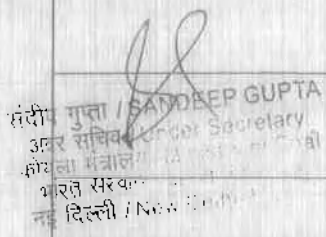 संदीप गुप्ता / SANDEEP GUPTA
अवर सचिव / Under Secretary
कोयला मंत्रालय
भारत सरकार
नई दिल्ली / New